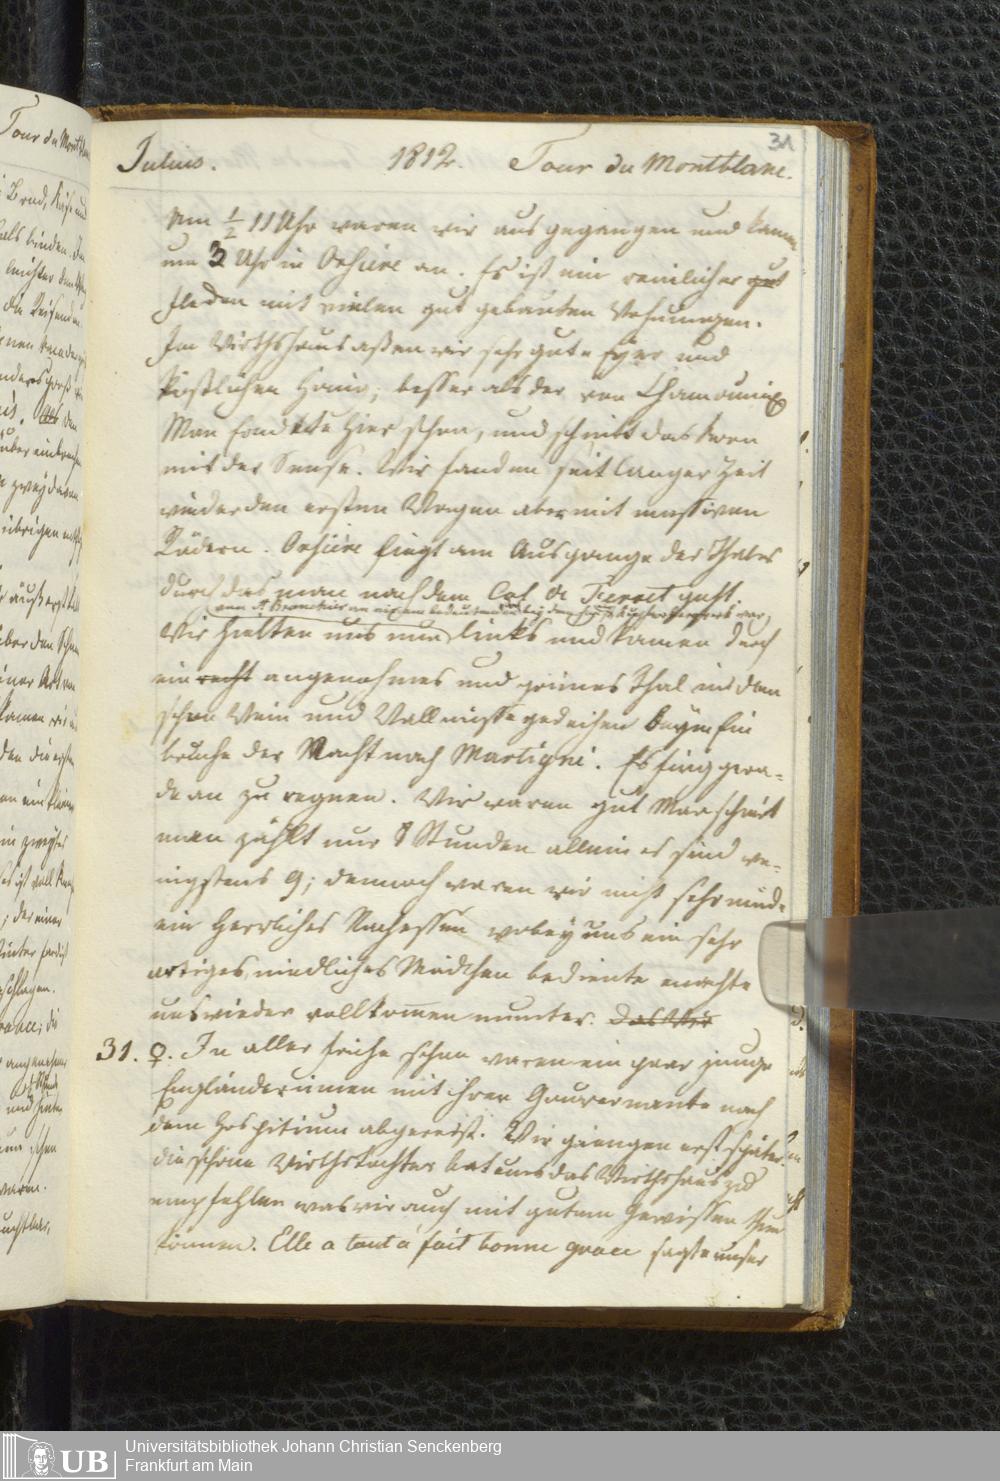 31
Julius. 1812. Tour du Montblanc.
Um ½ 11 Uhr waren wir ausgegangen und kamen
um 3 Uhr in Orsiere an. Es ist ein reinlicher gut
Flecken mit vielen gut gebauten Wohnungen.
Im Wirthshaus aßen wir sehr gute Eyer und
köstlichen Honig, besser als der von Chamounix
Man hier schon, und schnitt das Korn
mit der Sense. Wir fanden seit langer Zeit
wieder den ersten Wagen aber mit massiven
Rädern. Orsiere liegt am Ausgange des Thales
durch das man nach dem Col de Ferret geht.
Wir hielten uns nun links und kamen durch
ein recht angenehmes und grünes Thal in dem
schon Wein und Wallnüsse gedeihen beym Ein
bruche der Nacht nach Martigni. Es fing gera-
de an zu regnen. Wir waren gut marschirt
man zählt nur 8 Stunden allein es sind we-
nigstens 9; dennoch waren wir nicht sehr müd-
ein herrliches Nachessen wobey uns ein sehr
artiges, niedliches Mädchen bediente machte
uns wieder vollkommen munter. Das Wir
31. ♀. In aller frühe schon waren ein paar junge
Engländerinnen mit ihrer Gouvernante nach
dem Hospitium abgereist. Wir giengen erst später
die schöne Wirthstochter bat uns das Wirthshaus zu
empfehlen was wir auch mit gutem Gewissen thun
können. Elle a tout a fait bonne grace sagte unser
Universitätsbibliothek Johann Christian Senckenberg
Frankfurt am Main
UB